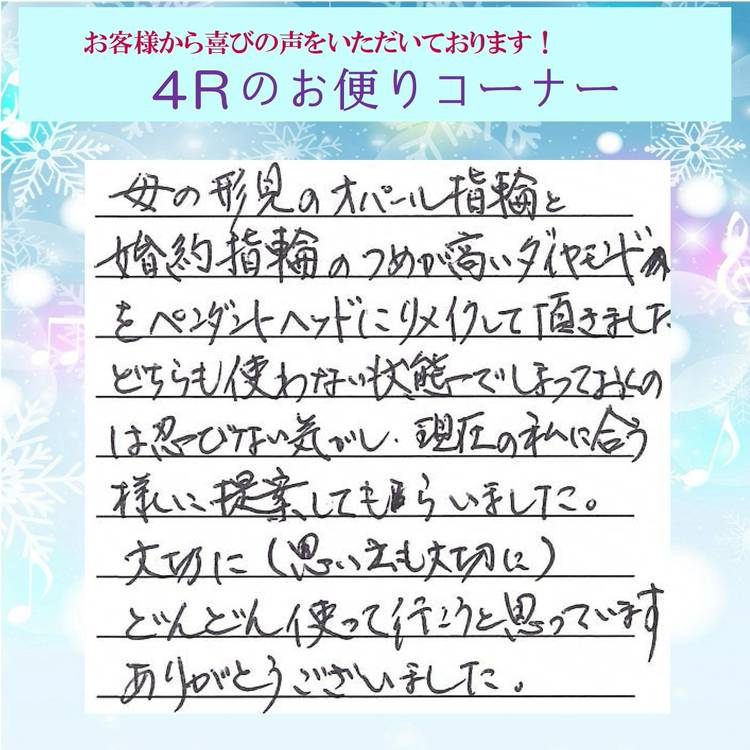 お客様から喜びの声をいただいております!
4Rのお便りコーナー
母の形見のオパール指輪と
婚約指輪のつめが高いダイヤモンド
をペンダントヘッドにリメイクして頂きました
どちらも使わない状態でしまっておくの
は忍びない気がし、現在の私に合う
様に提案してもらいました。
大切に(思い出も大切に)
どんどん使って行こうと思っています
ありがとうございました。